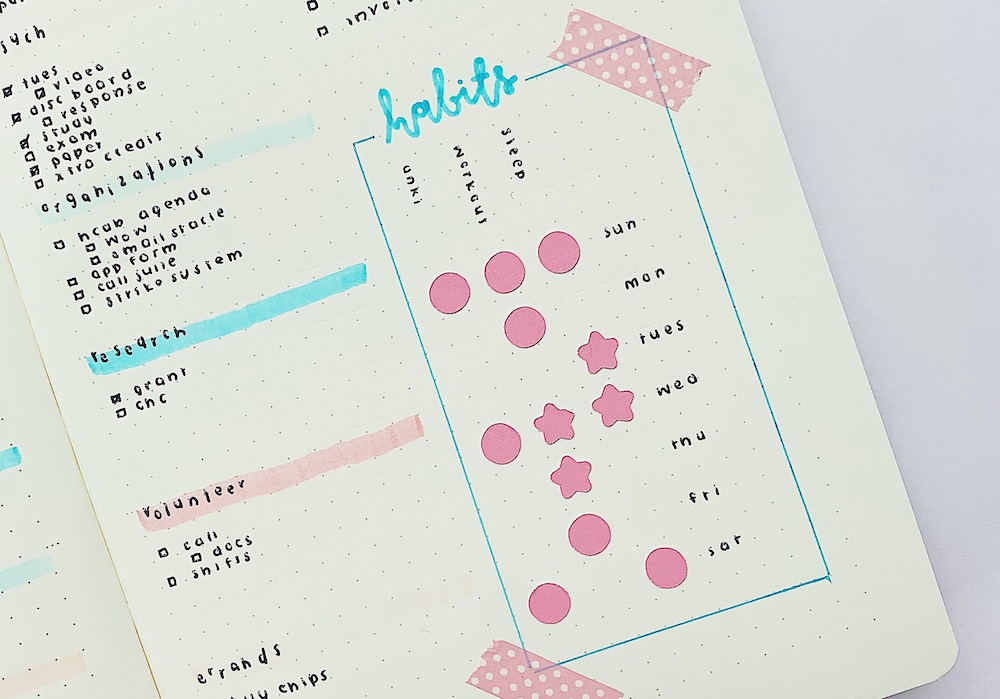 sych
tues
video
disc board
response
study
exam
paper
xtra credit
organizations
hcab agenda
wow
email stacie
app form
call julie
strike system
research
grant
chc
volunteer
call
docs
shifts
errands
buy chips
habits
anki
workout
sleep
sun
mon
tues
wed
thu
fri
sat